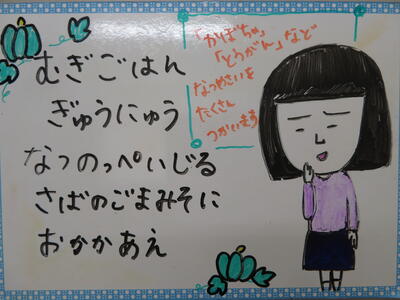 むぎごはん
ぎゅうにゅう
なつのっぺいじる
さばのごまみそに
おかかあえ
「かぼちゃ」
「とうがん」など
なつやさいを
たくさん
つかいます